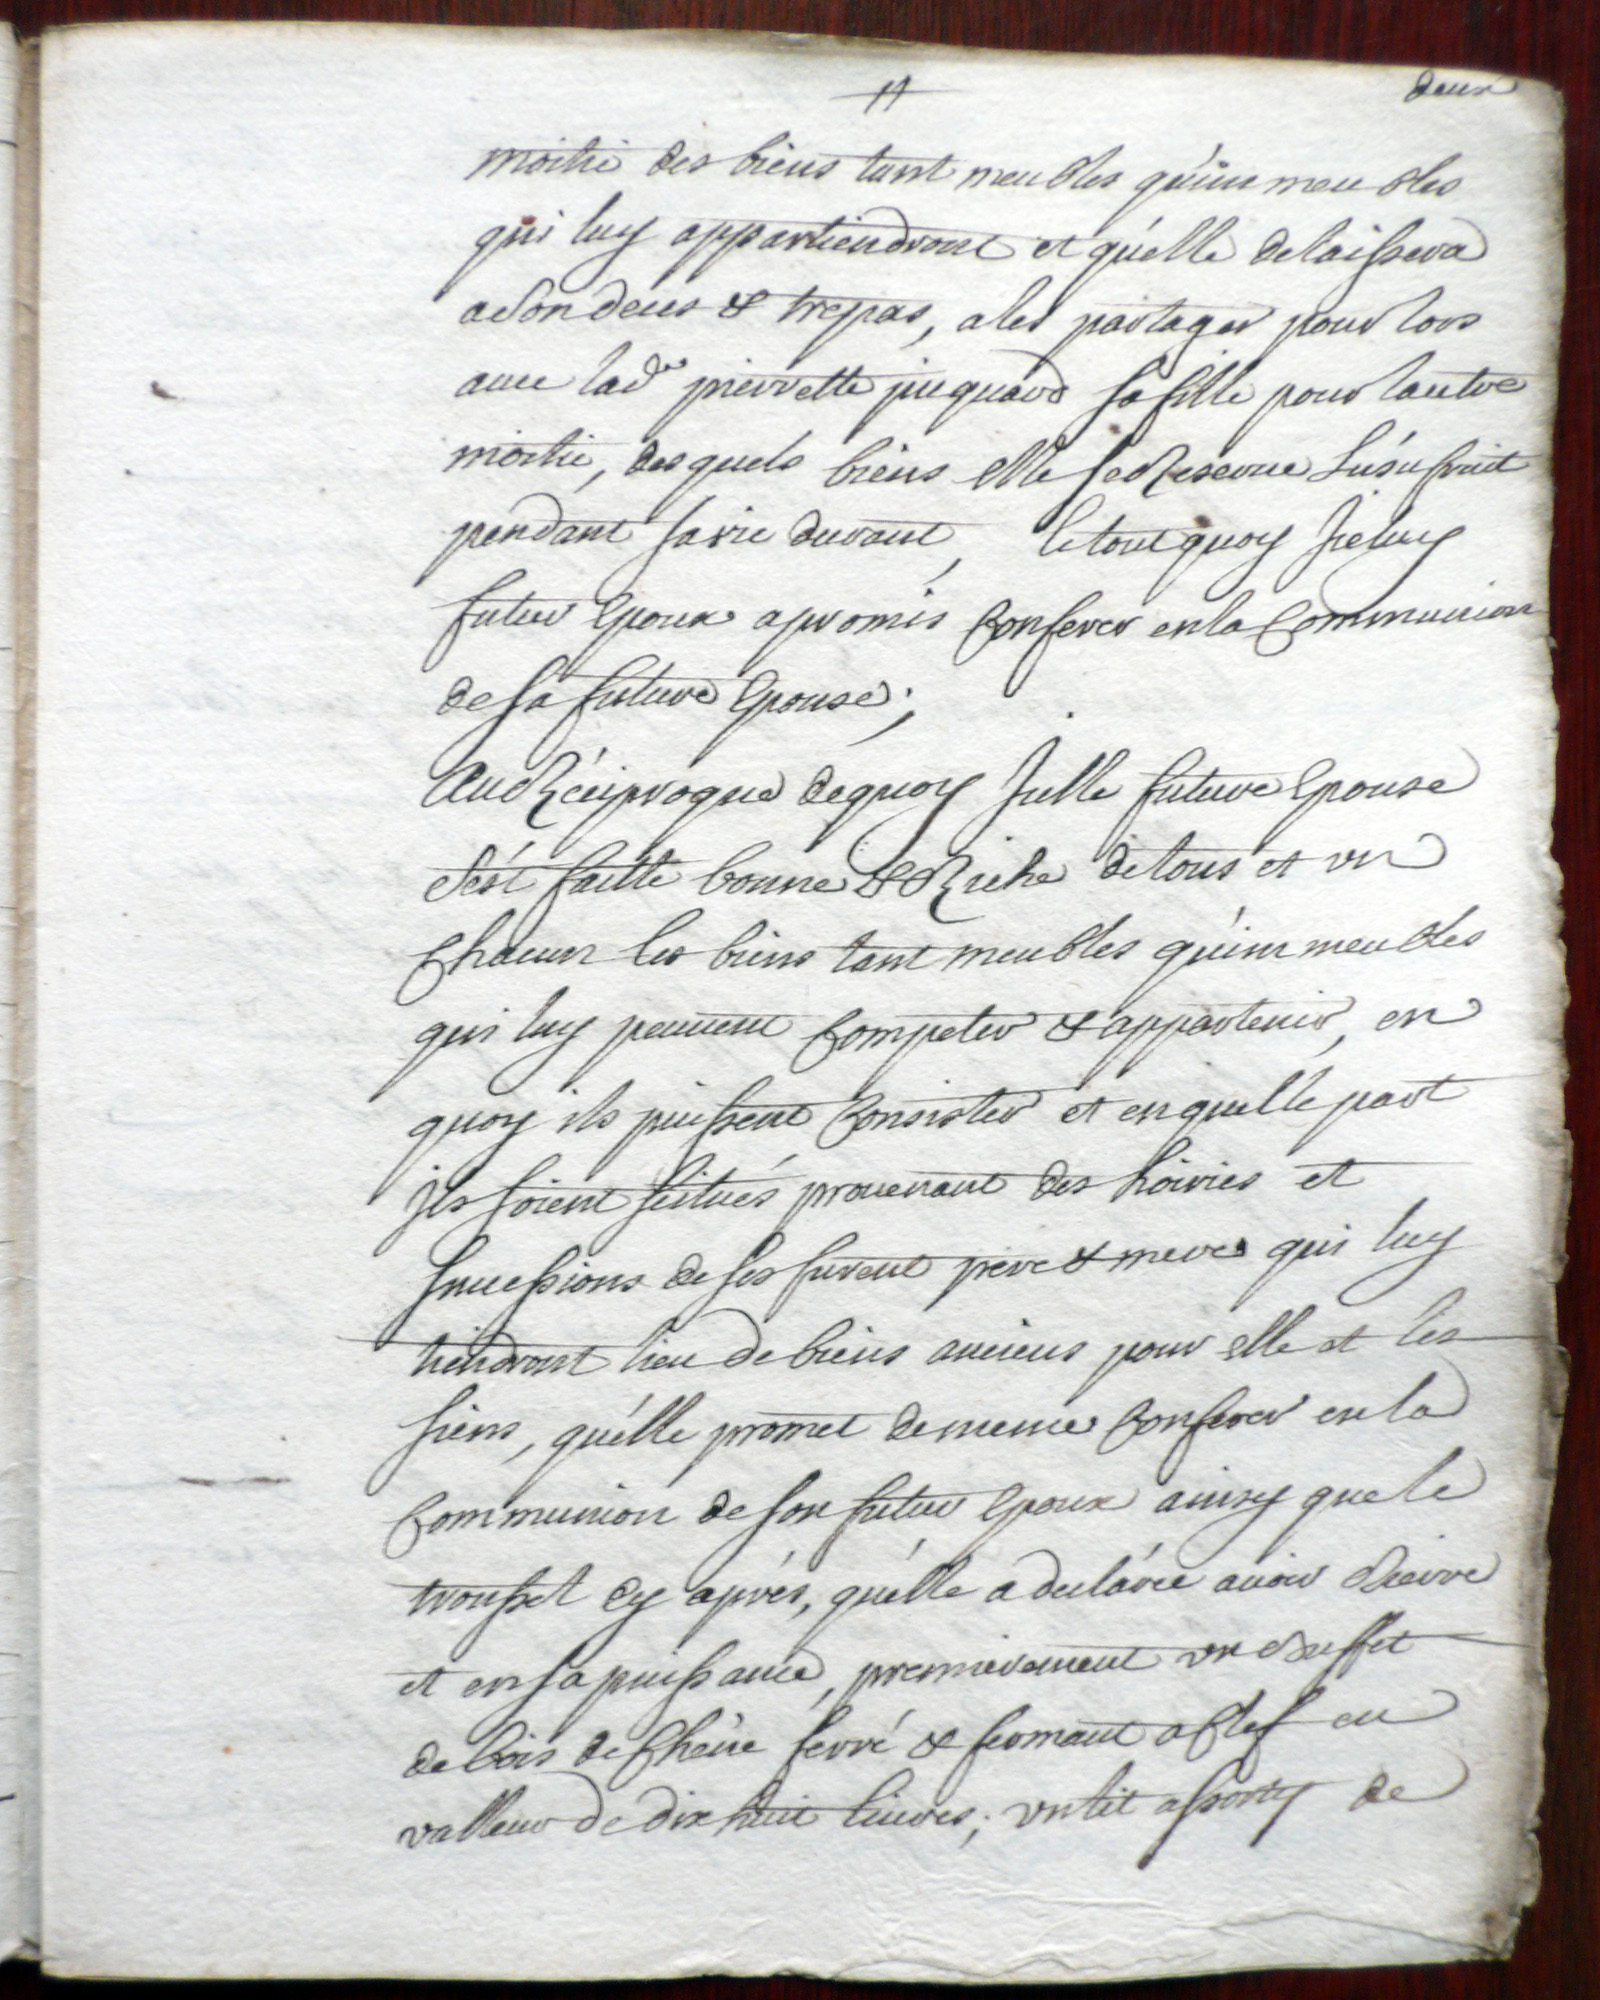 deux
moitié des biens tant meubles qu'immeubles
qui luy appartiendront et qu'elle delaissera
a son deces & trepas, a les partager pour lors
avec lad.e pierrette juquard sa fille pour lautre
moitié, desquels biens elle se Reserve L'usufruit
pendant sa vie durant, le tout quoy Jceluy
futur Epoux a promis Conferer en la Communion
de sa future Epouse;
Au Réciproque dequoy Jcelle future Epouse
s'est faitte bonne & Riche de tous et un
Chacun les biens tant meubles qu'immeubles
qui luy peuvent Competer & appartenir, en
quoy ils puissent Consister et en quelle part
jls soient situés provenant des hoiries et
successions de ses furent pere & mere qui luy
tiendront lieu de biens anciens pour elle et les
siens, qu'elle promet de meme Conferer en la
Communion de son futur Epoux ainsy que le
troussel Cy aprés, qu'elle a declárée avoir Rierre
et en sa puissance, premierement un Buffet
de bois de Chêne ferré & fermant a Clef en
valleur de dix huit livres; un lit assorty de